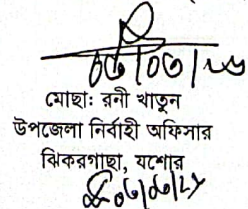 মোছাঃ রনী খাতুন
উপজেলা নির্বাহী অফিসার
ঝিকরগাছা, যশোর